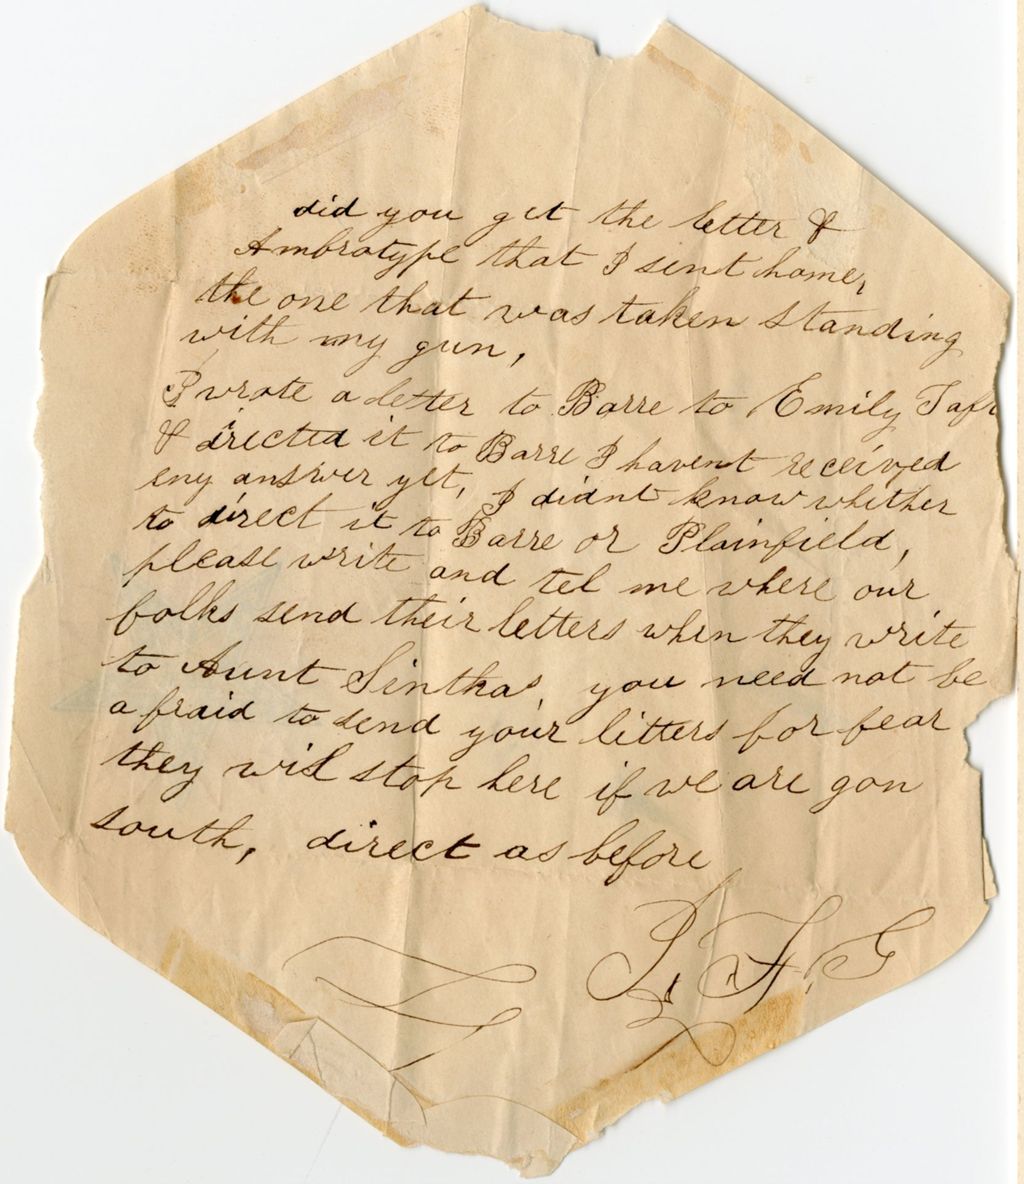 did you get the letter &
Ambrotype that I sent home,
the one that was taken standing
with my gun,
I wrote a letter to Barre to Emily Taft
& directed it to Barre I havent received
eny answer yet, I didnt know whether
to direct it to Barre or Plainfield,
please write and tel me where our
folks send their letters when they write
to Aunt Sinthas you need not be
afraid to send your letters for fear
they will stop here if we are gon
south, direct as before
J. F. G